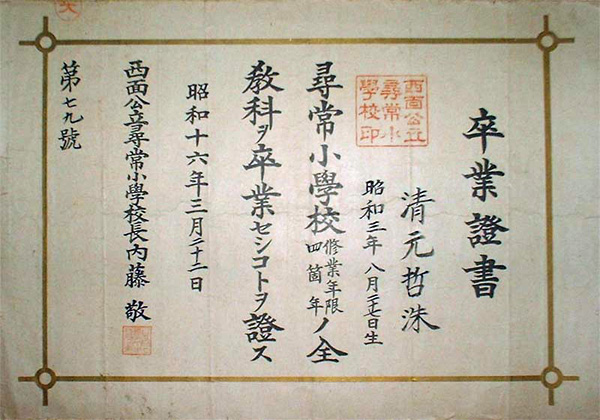 卒業證書
清元哲洙
昭和三年八月二十七日生
西面公立
尋常小
學校印
尋常小學校修業年限四箇年ノ全
教科ヲ卒業セシコトヲ證ス
昭和十六年三月二十二日
西面公立尋常小學校長內藤敬
第七九號